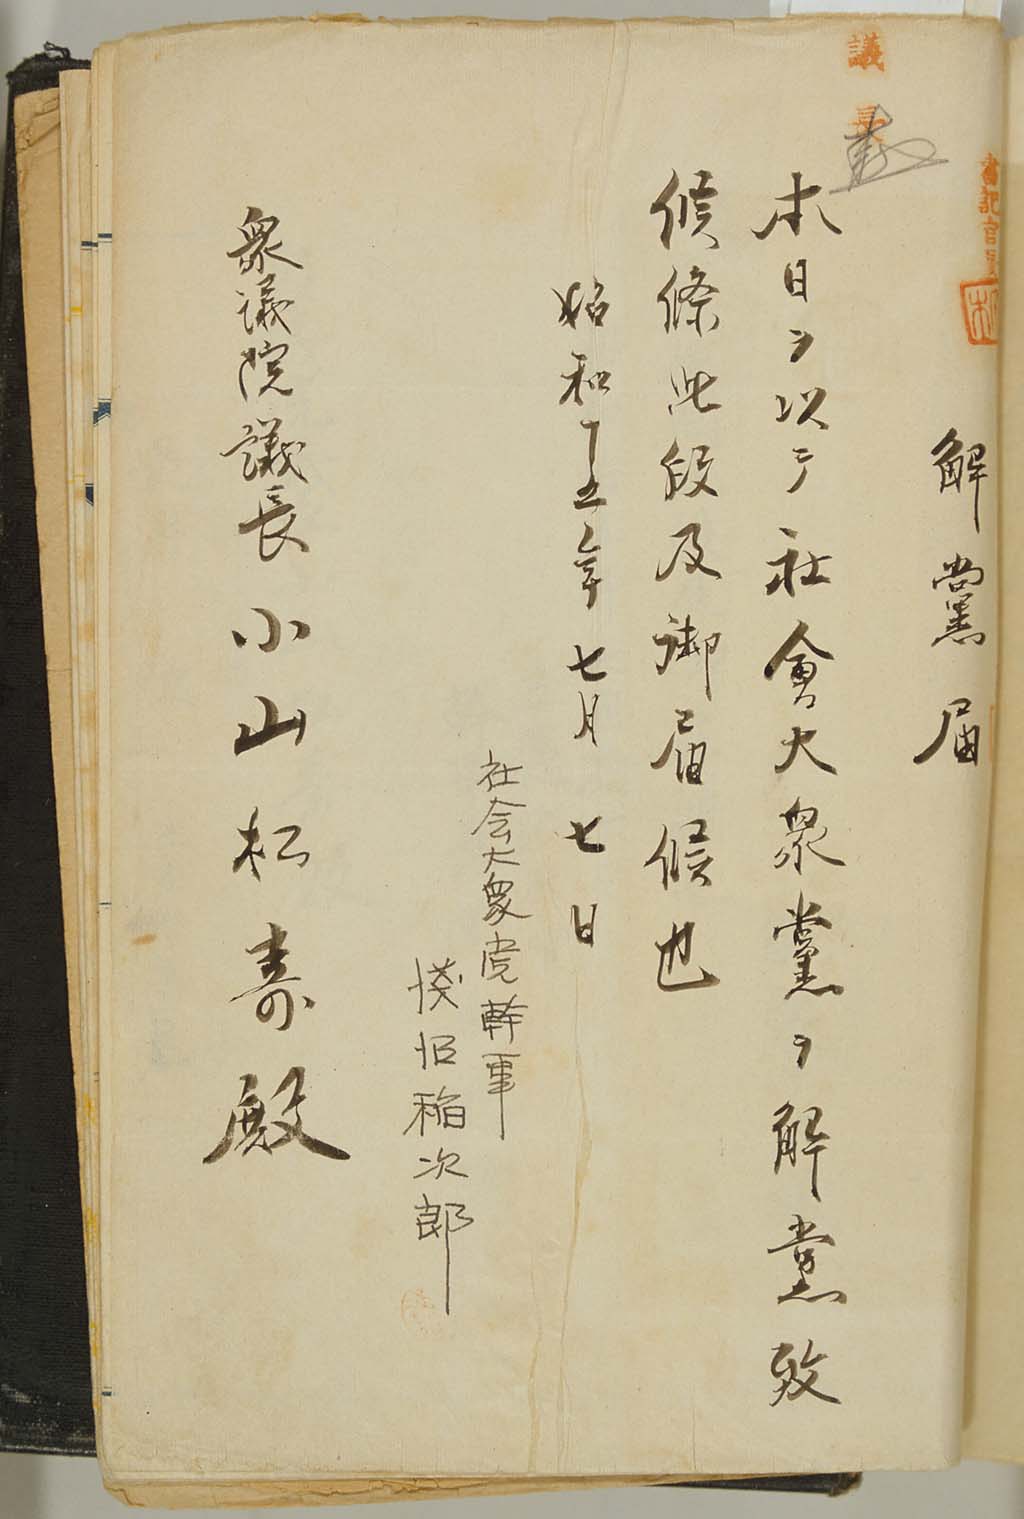 書記官長
議長
解黨届
本日ヲ以テ社會大衆黨ヲ解党致
候條此段及御届候也
昭和十五年七月七日
社会大衆党幹事
浅沼稲次郎
衆議院議長小山松寿殿